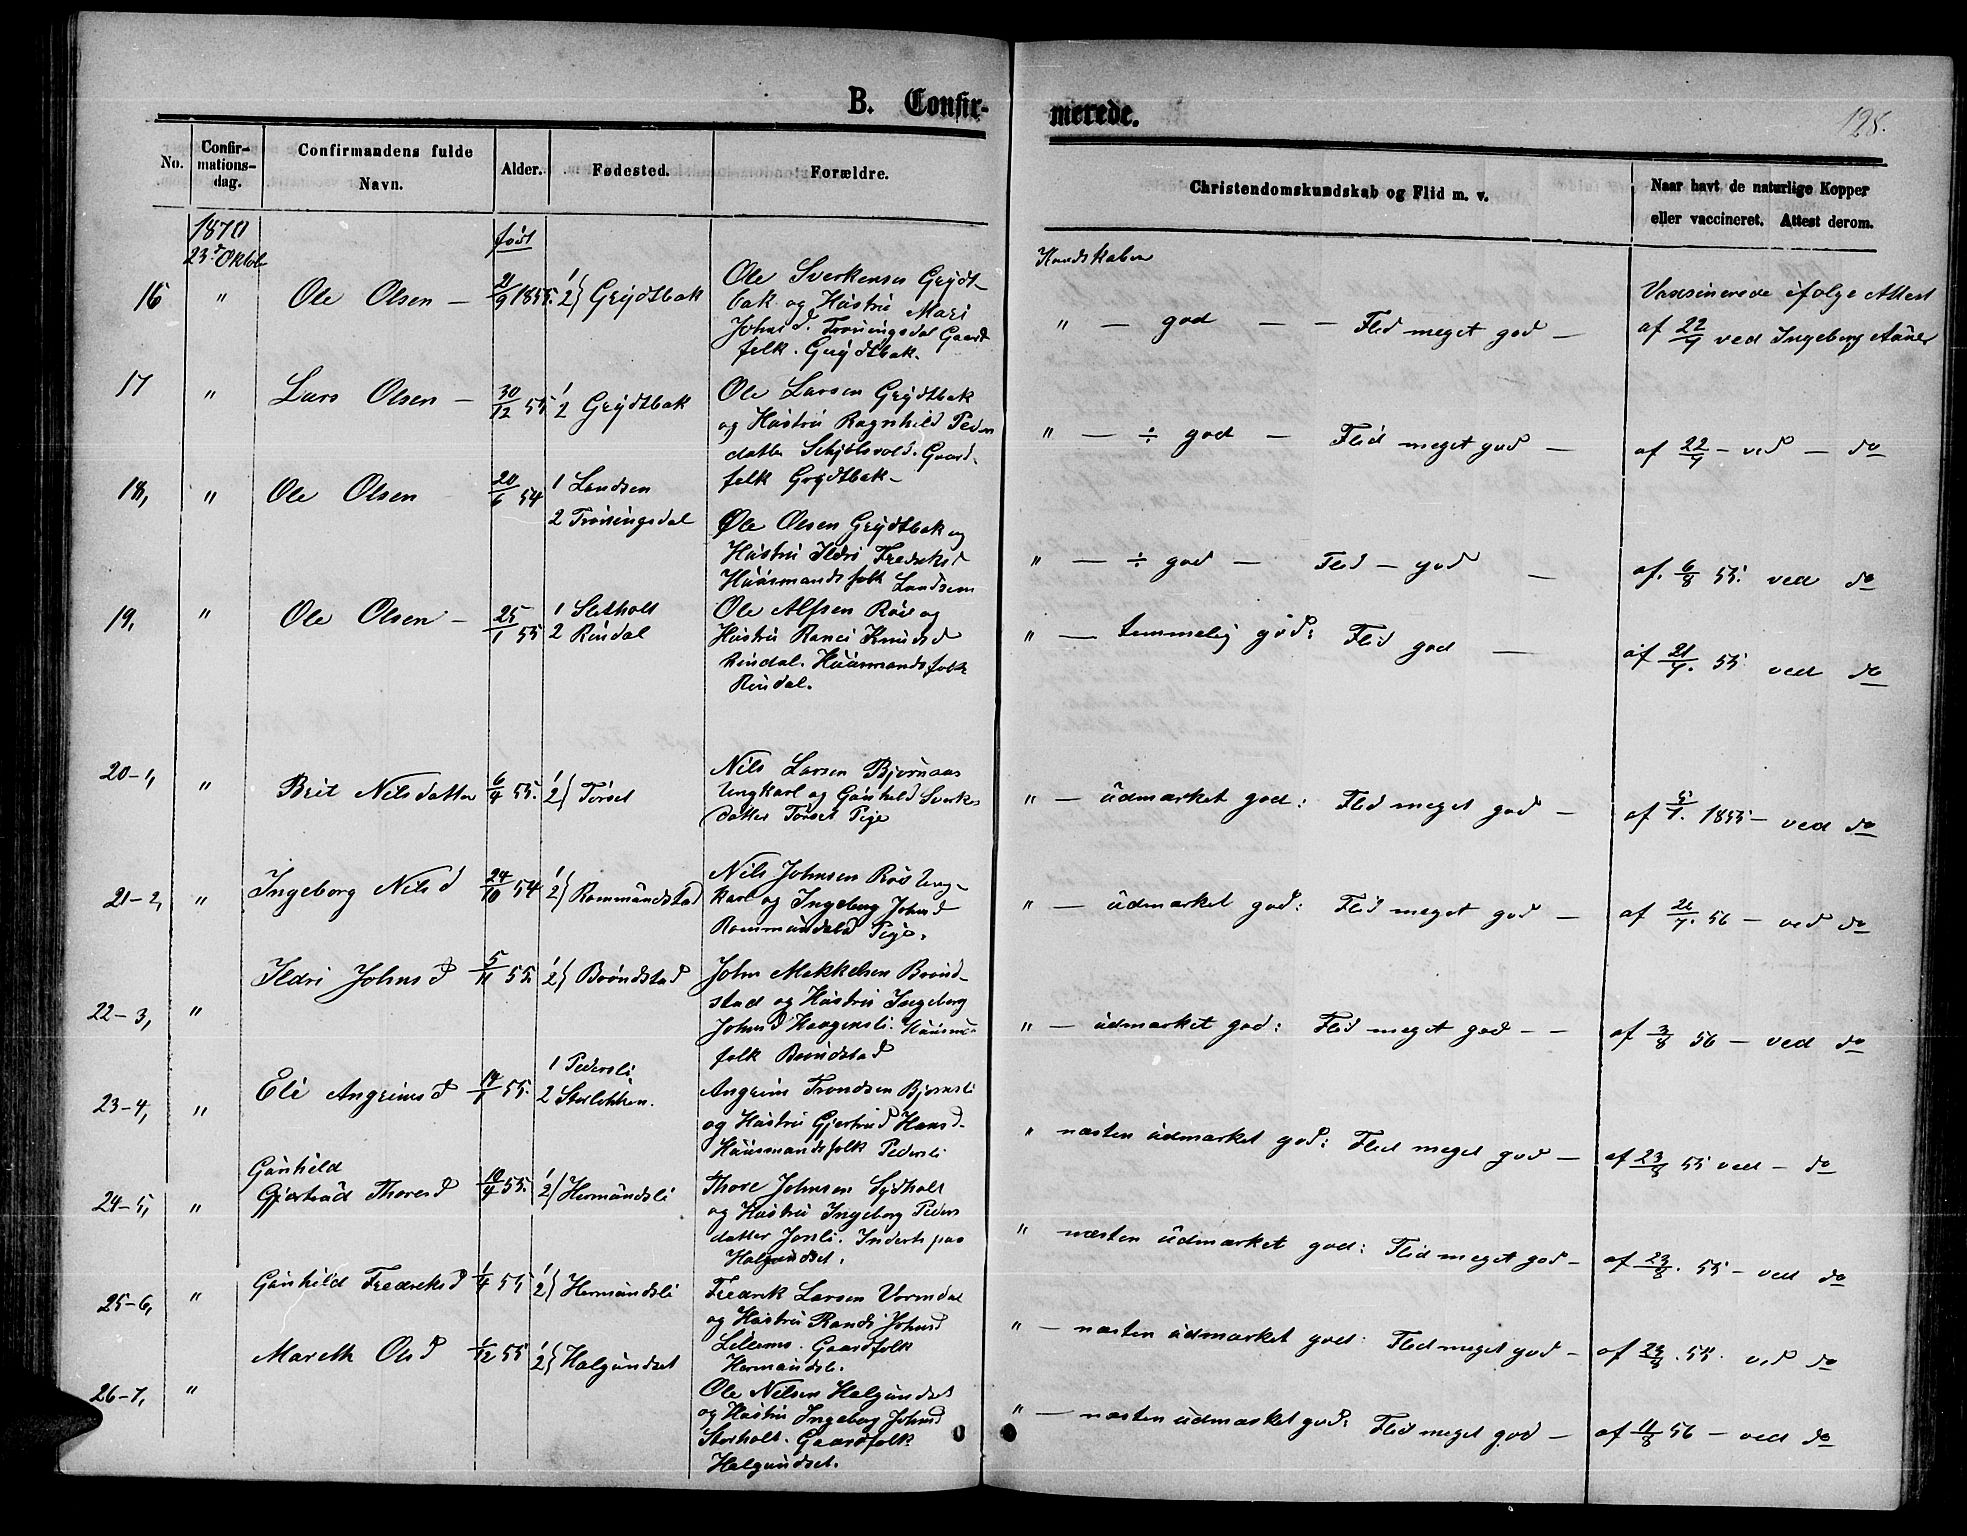 B. Confir-
merede.
128.
No.
Confir-
mations-
dag.
Confirmandens fulde
Navn.
Alder.
Fødested.
Forældre.
Christendomskundskab og Flid m. v.
Naar havt de naturlige Kopper
eller vaccineret. Attest derom.
1870
23de Oktob
født
Kundskaber
16 " Ole Olsen — 21/9 1855. 1/2} Grÿdtbak
Ole Sverkensen Grÿdt-
bak og Hústrú Mari
Johnsd. Tröningsdal Gaard
folk. Grÿdtbak.
" — god — — Flid meget god —
Vaksinerede ifølge Attest
af 22/9 ved Ingeborg Aúnes
17 " Lars Olsen — 30/12 55 1/2 Grÿdtbak
Ole Larsen Grÿdtbak
og Hústrú Ragnhild Peders
datter Schjölsvold. Gaard-
folk Grÿdtbak —
" — ÷ god — Flid meget god —
af 22/9 — ved — do
18, " Ole Olsen 20/6 54 1 Landsen
2 Tröningsdal
Ole Olsen Grÿdtbak og
Hústrú Ildri Fredriksd
Húúsmandsfolk Landsem
" — ÷ god — Flid — god —
af. 6/8 55. ved do
19, " Ole Olsen — 25/1 55 1 Sletholt
2 Rindal
Ole Alfsen Röe og
Hústrú Ranei Knudsd
Rindal. Húúsmandsfolk
Rindal.
" — temmelig god: Flid god —
af 21/9. 55 ved do
20-1, " Brit Nilsdatter 6/4 55. 1/2} Törset
Nils Larsen Bjørnaas
Ungkarl og Gúnhild Sverks
datter Törset Pige
" — údmærket god: Flid meget god —
af 5/9. 1855 — ved do
21-2, " Ingeborg Nilsd 24/10 54 1/2} Rommúndstad
Nils Johnsen Röe Ung-
karl og Ingeborg Johnsd
Rommúndstad Pige.
" — údmærket god: Flid meget god —
af 26/7. 56 — ved do
22-3, " Ildri Johnsd 5/11 55. 1/2} Bröndstad
John Mikkelsen Brönd-
stad og Hústrú Ingeborg
Johnsd Haagensli. Húúsm-
folk Bröndstad
" — údmærket god: Flid meget god — —
af 3/8 56 — ved do
23-4, " Eli Angrimsd 55. 1 Pedersli
2 Storlökken.
Angrim Trondsen Bjørnsli
og Hústrú Gjertrud Hansd.
Húúsmandsfolk Pedersli
" næsten údmærket god: Flid meget god —
af 23/8 55 ved — do
24-5, " Gúnhild
Gjertrúd Thoresd 10/4 55. 1/2} Hermúndsli
Thore Johnsen Sÿdholt
og Hústrú Ingeborg Peders
datter Jonsli. Inderts paa
Halgúndset.
" næsten údmærket god: Flid meget god —
af 23/8. 55 — ved do
25-6, " Gúnhild Fredriksd 1/4 55 1/2} Hermúndsli
Fredrik Larsen Vormdal
og Hústrú Randi Johnsd
Lillemo. Gaardfolk
Hermúndsli.
" — næsten údmærket god: Flid meget god —
af 23/8. 55. ved do
26-7, " Mareth Olsd 55 1/2} Halgúndset
Ole Nilsen Halgúndset
og Hústrú Ingeborg Johnsd
Storholt. Gaardfolk
Halgúndset.
" — næsten údmærket god: Flid meget god —
af 11/8 56 — ved do